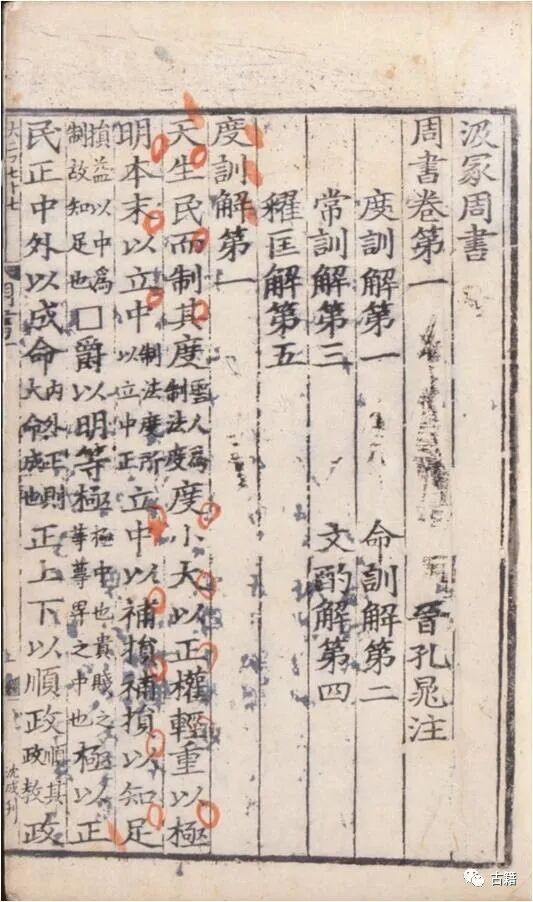 汲冢周書
周書卷第一 晉孔晁注
度訓解第一 命訓解第二
常訓解第三 文酌解第四
糴匡解第五
度訓解第一
天生民而制其度雲人爲制法度度小大以正權輕重以極
明本末以立中制法度所以立中正立中以補損補損以知足
損益以中爲制故知足也□爵以明等極極中也貴賤之等尊卑之中也極以正
民正中外以成命内外正則大命成也正上下以順政順其政教政
古籍